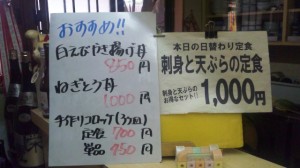 おすすめ!!
白えびかき揚げ丼
850円
ねぎとろ丼
1000円
手作りコロッケ(3ヶ)
定食 700円
単品 450円
本日の日替わり定食
刺身と天ぷらの定食
刺身と天ぷらの
お得なセット!!
1,000円